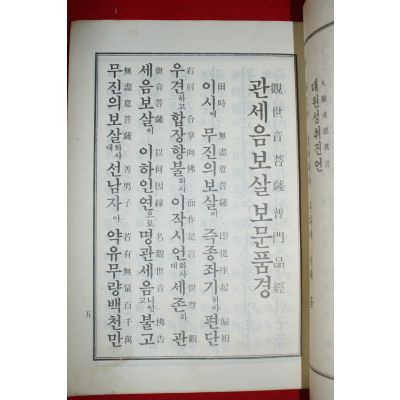 大願成就眞言
대원성취진언
觀世音菩薩普門品經
관세음보살보문품경
爾時 無盡意菩薩 即從座起 偏袒
이시에 무진의보살이 즉종좌기하야 편단
右肩 合掌向佛 而作是言 世尊 觀
우견하고 합장향불하사 이작시언대하사 세존하 관
世音菩薩 以何因緣 名觀世音 佛告
세음보살이 이하인연으로 명관세음고니잇 불고
無盡意菩薩 善男子 若有無量百千萬
무진의보살대하사 선남자야 약유무량백천만
五